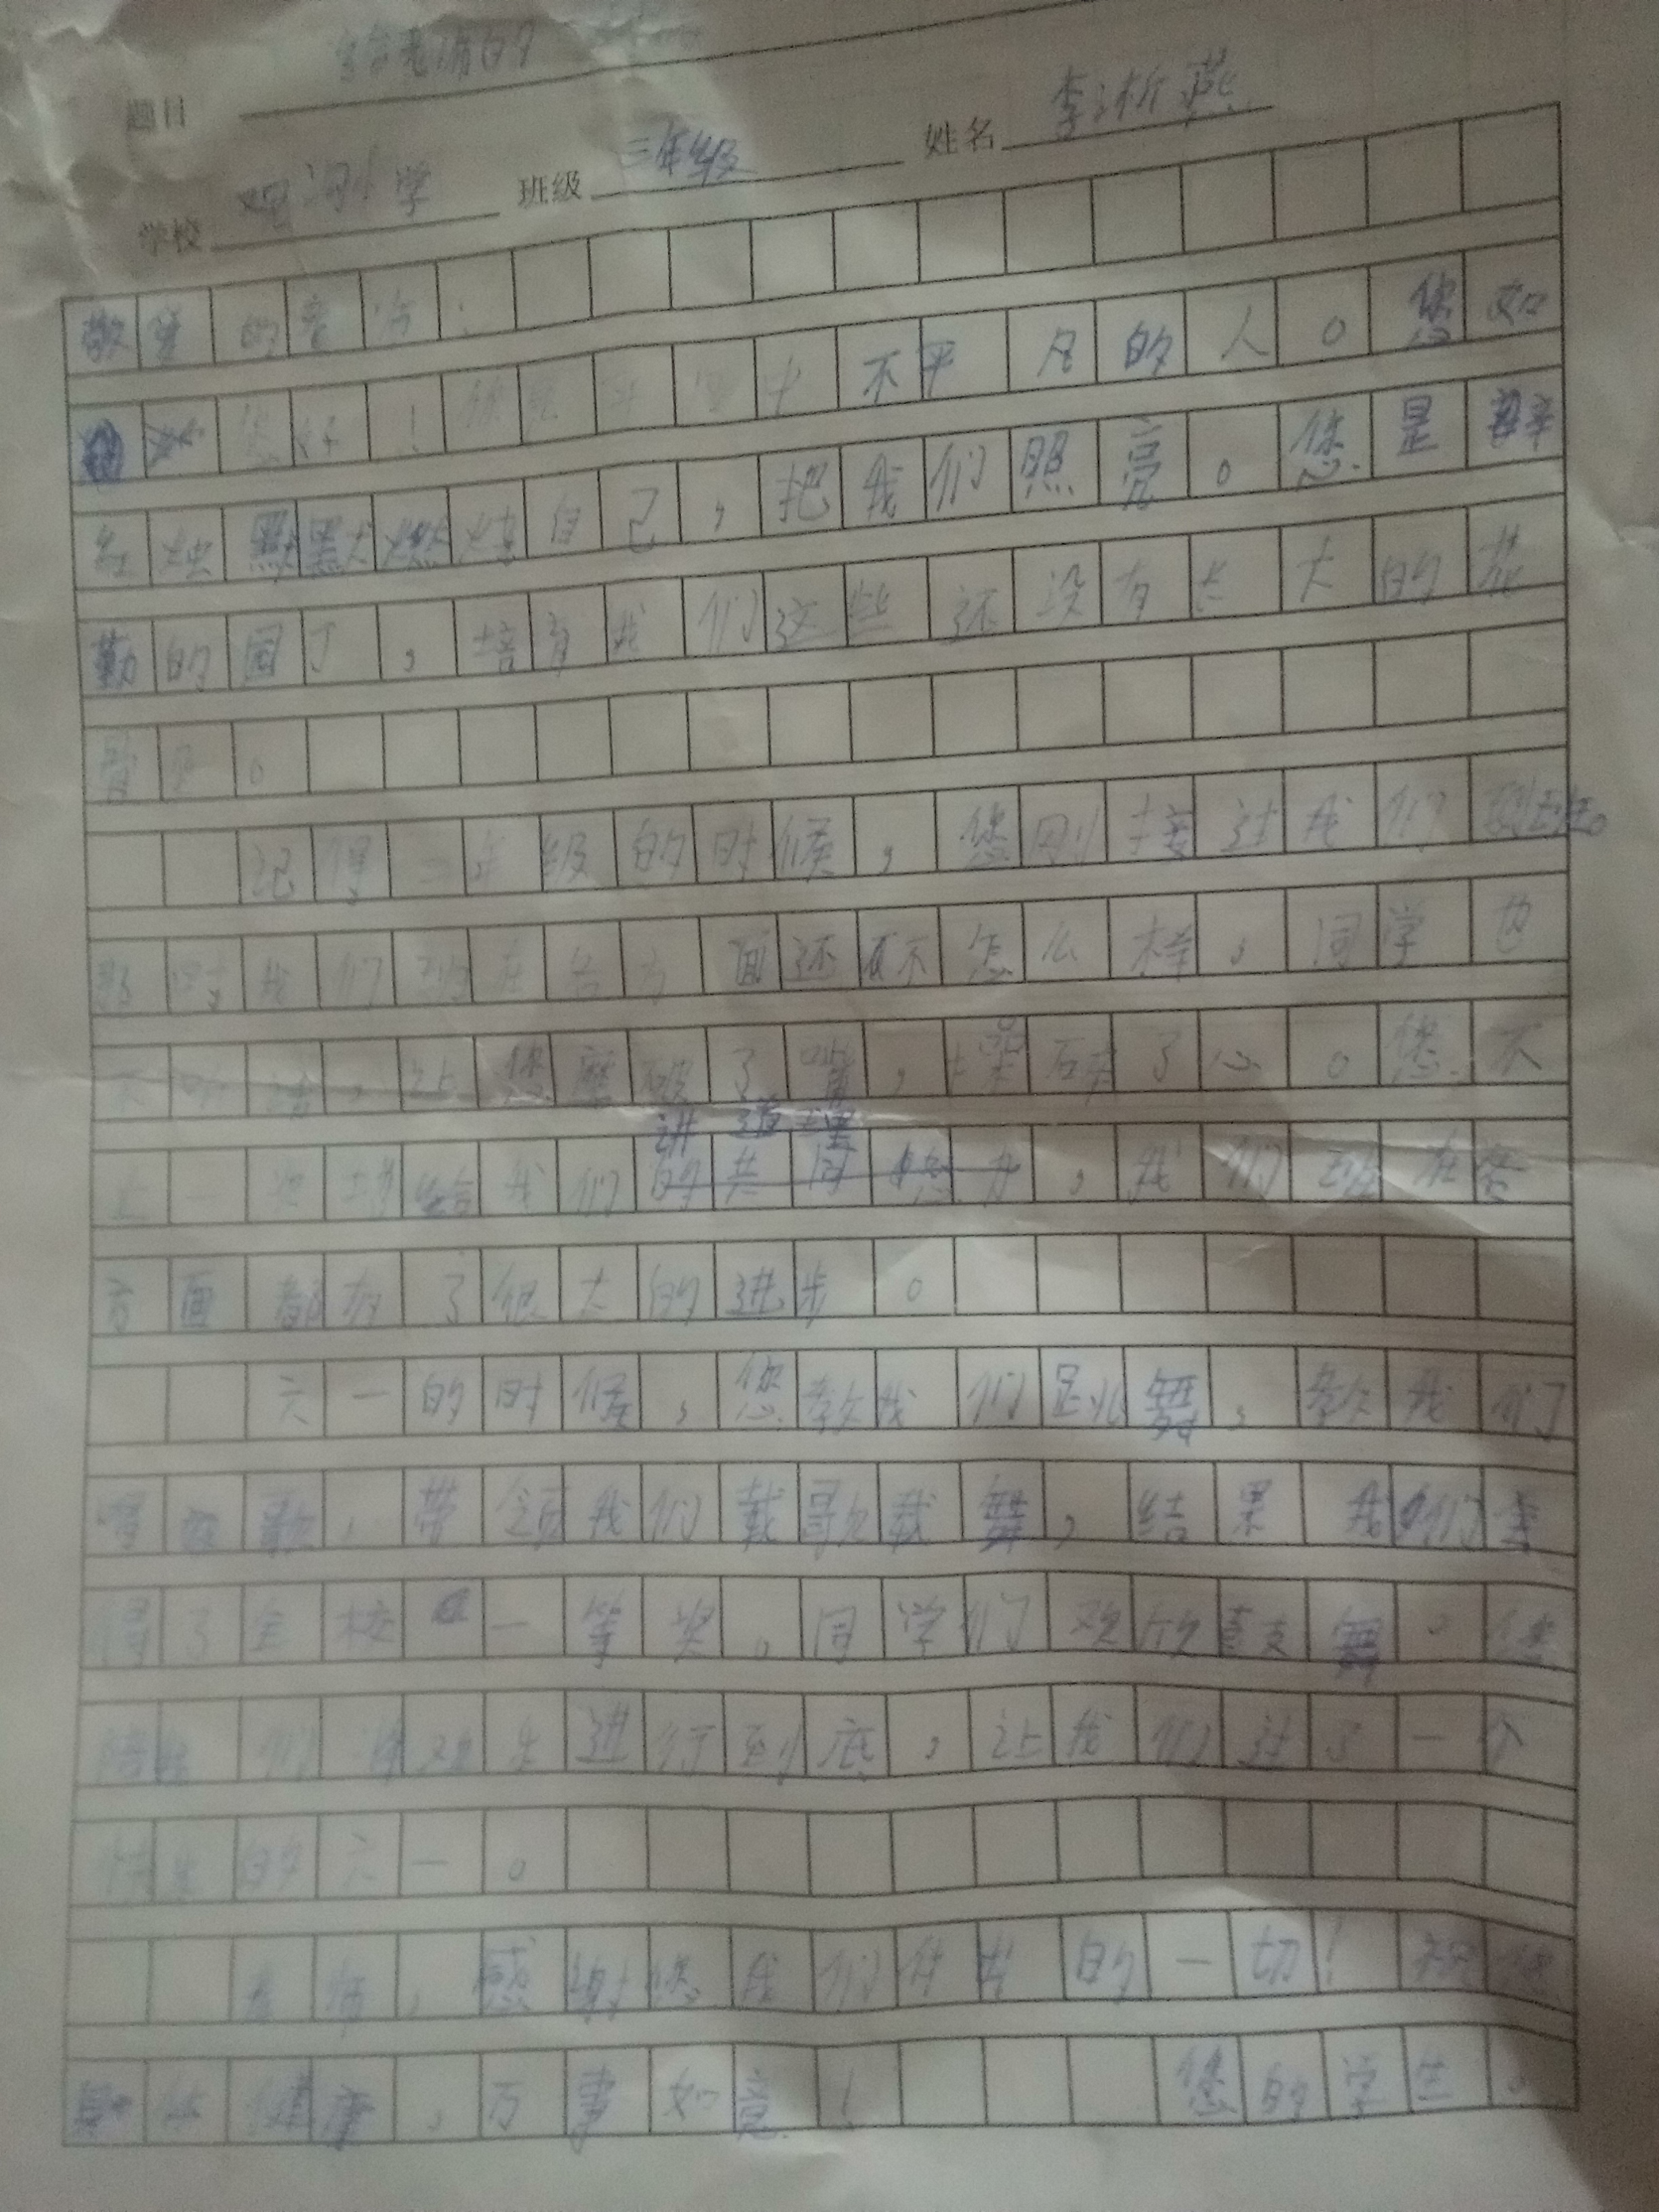 题目 给老师的
学校 河小学 班级 三年级 姓名 李
敬爱的老师：
您好！您是 不平凡的人。您如
红烛默默燃烧自己，把我们照亮。您是辛
勤的园丁，培育我们这些还没有长大的花
骨朵。
记得二年级的时候，您刚接过我们班。
那时我们班在各方面还不怎么样，同学也
不听话，让您磨破了嘴，操碎了心。您不
给我们讲道理，我们班在各
方面都有了很大的进步。
六一的时候，您教我们跳舞，教我们
唱歌，带领我们载歌载舞，结果我们拿
得了全校一等奖。同学们欢欣鼓舞。您
陪我们 进行到底，让我们过了一个
快乐的六一。
老师，感谢您我们付出的一切！祝您
身体健康，万事如意！ 您的学生：